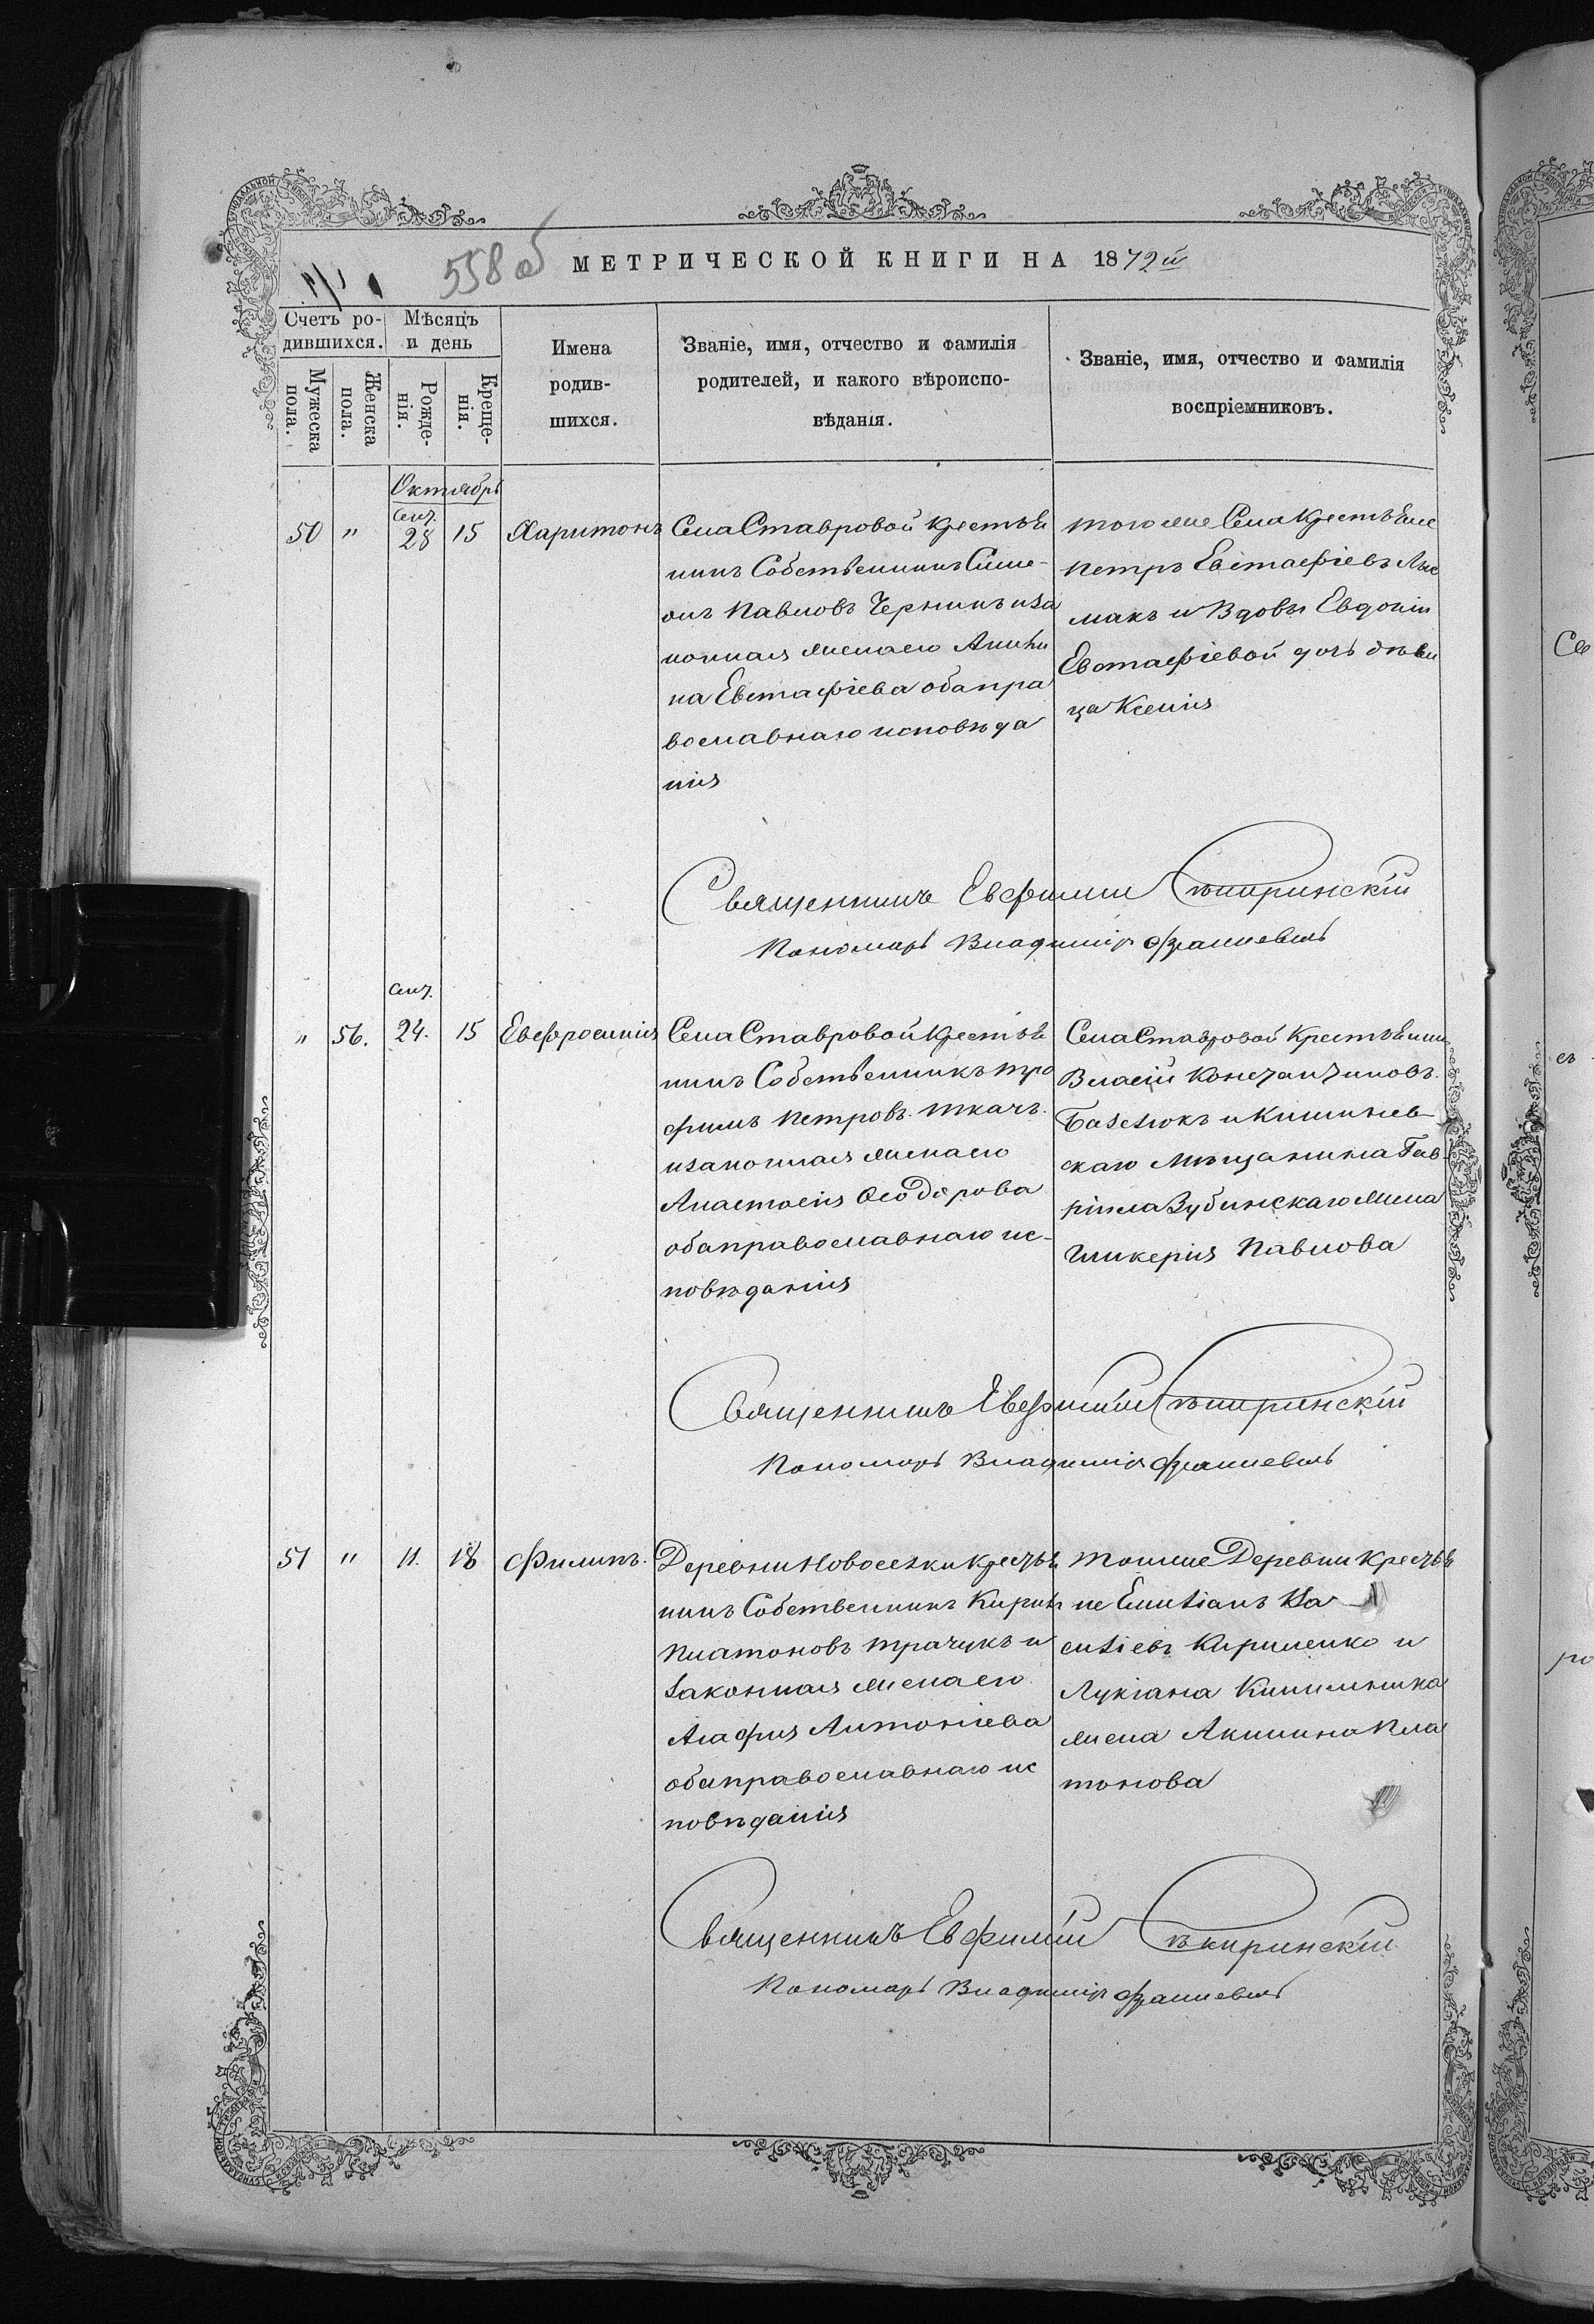 558 об МЕТРИЧЕСКОЙ КНИГИ НА 1872й
Счетъ ро-
дившихся.
Мужеска
пола.
Женска
пола.
Мѣсяцъ
и день
Рожде-
нія.
Креще-
нія.
Имена
родив-
шихся.
Званіе, имя, отчество и фамилія
родителей, и какого вѣроиспо-
вѣданія.
Званіе, имя, отчество и фамилія
воспріемниковъ.
Октябрь
50 " Сент. 28 15 Харитонъ
Села Ставровой крестья
нинъ Собственникъ Симе-
онъ Павловъ Черныкъ иза
конная жена его
на Евстафіева оба пра
вославнаго исповѣда
нія
того же Села Крестьяне
Петръ Евстафіевъ Лыс
макъ и Вдовы Евдокіи
Евстафіевой дочь дѣви
ца Ксенія
Священникъ Евфимій
Пономарь Владимір
Сент.
" 56. 24. 15 Евфросинія
Села Ставровой Крестья
нинъ Собственникъ Тро
фимъ Петровъ Ткачъ
изаконная жена его
Анастасія Ѳеодорова
оба православнаго ис-
повѣданія
Села Ставровой Крестьянинъ
Власій Константиновъ
Базелюкъ и Кишинев-
скаго Мѣщанина Гав-
ріила Зубинскаго жена
Гликерія Павлова
Священникъ Евфимій
Пономарь Владимір
51 " 11. 18 Филипъ.
Деревни Новоселки крестья
нинъ Собственникъ Кирилъ
Платоновъ Трачукъ и
законная жена его
Агафія Антоніева
оба православнаго ис
повѣданія
Тоиже Деревни крестья
не Емиліанъ Ва
силіевъ Кириленко и
Лукіана Кишильника
жена Акилина Пла
тонова
Священникъ Евфимій
Пономарь Владимір